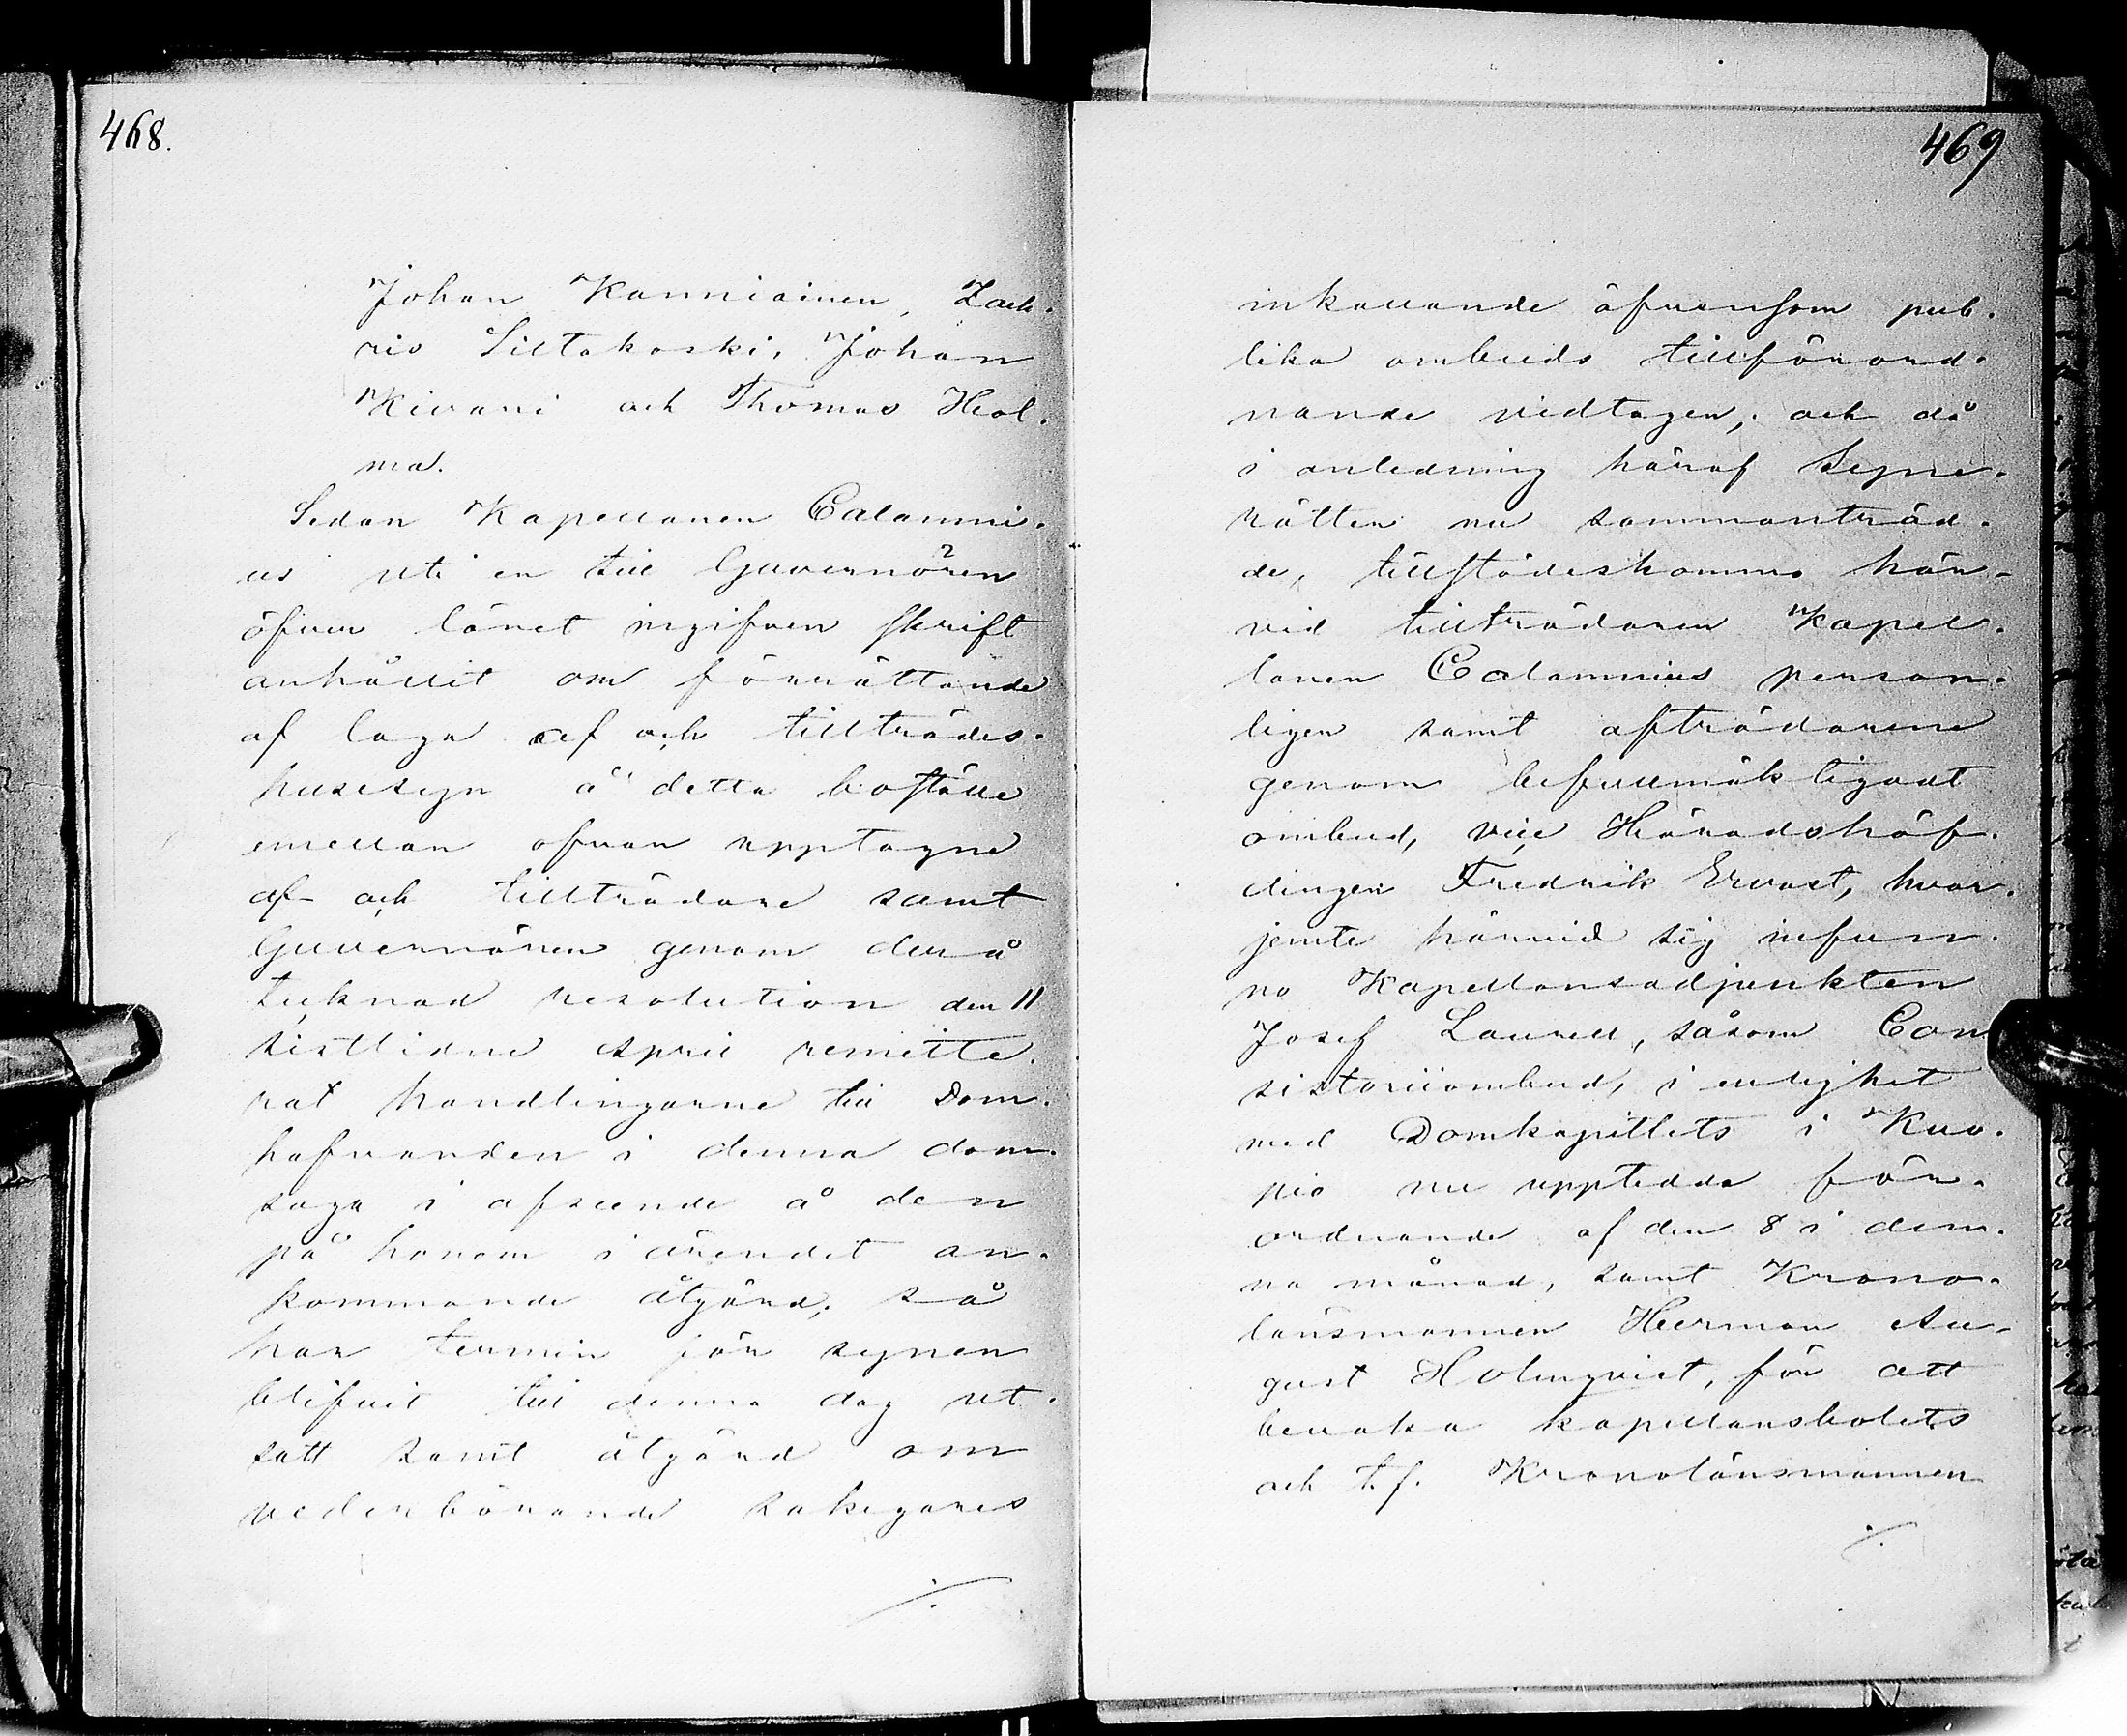 468.
Johan Kanniainen, Zach.
ris Siltakoski, Johan
Kivani och Thomas Hiol.
ma.
Sedan Kapellanen Calamni.
us uti en till Guvernören
öfver länet ingifven skrift
anhållit om förrättande
af laga af och tillträdes.
husesyn å detta boställe
emellan ofvan upptagne
af- och tillträdare samt
Guvernören genom derå
tecknad resolution den 11
sistlidne April remitte.
rat handlingarne till Dom.
hafvanden i denna dom.
saga i afseende å den
på honom i ärendet an.
kommande åtgärd; så
har termin för synen
blifvit till denna dag ut.
satt samt åtgärd om
vederbörande sakegares
./.
469
inkallande äfvensom pub.
lika ombuds tillförord.
nande vidtagen; och då
i anledning häraf Syne.
rätten nu sammanträd.
de, tillstädeskommo här-
vid tillträdaren Kapel.
lanen Calamnius person.
ligen samt afträdarene
genom befullmäktigadt
ombud, vice Häradshöf.
dingen Fredrik Ervast, hvar.
jemte härvid sig infun.
no Kapellansadjunkten
Josef Laurell, såsom Con
sistoriiombud, i enlighet
med Domkapitlets i Kuo.
pio nu uppteddа för.
ordnande af den 8 i den.
na månad, samt Krono.
länsmannen Herman Au-
gust Holmqvist, för att
bevaka kapellansbolets
och t.f. Kronolänsmannen
./.